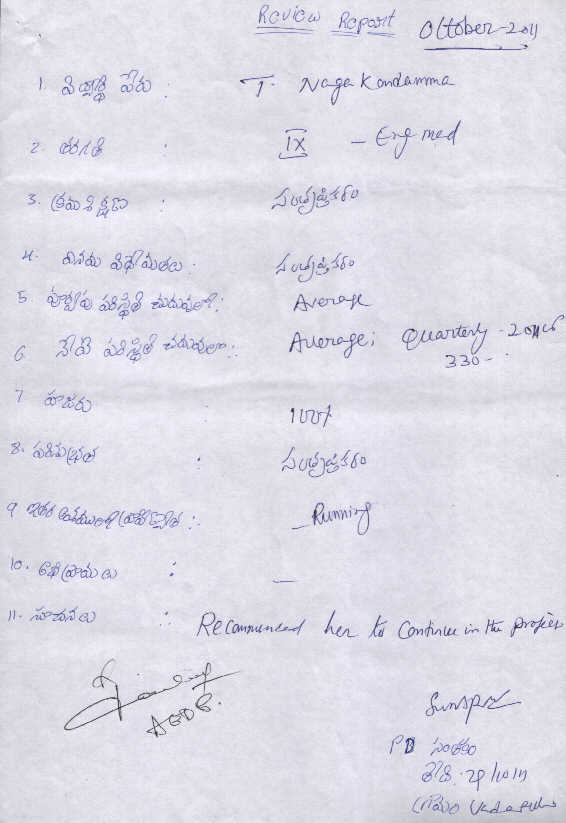 Review Report October-2011
1. విద్యార్థి పేరు : T. Naga Kondamma
2. తరగతి : IX - Eng med
3. క్రమశిక్షణ సంతృప్తికరం
4. : సంతృప్తికరం
5. పూర్వపు పరిస్థితి చదువులో : Average
6 పరిస్థితి చదువులో : Average; Quarterly -
330 -
7 హాజరు 100%
8. పరిశుభ్రత : సంతృప్తికరం
9 ఇతర : - Running
10. అభిప్రాయలు : —
11. సూచనలు : Recommened her to continue in the project
PD సంతకం
తేది.
గ్రామం